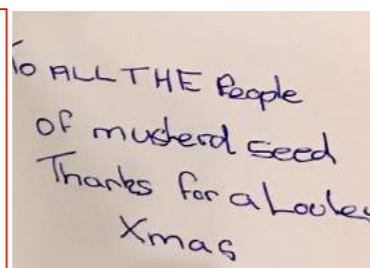 To ALL THE People
of musterd seed
Thanks for a Lovley
Xmas